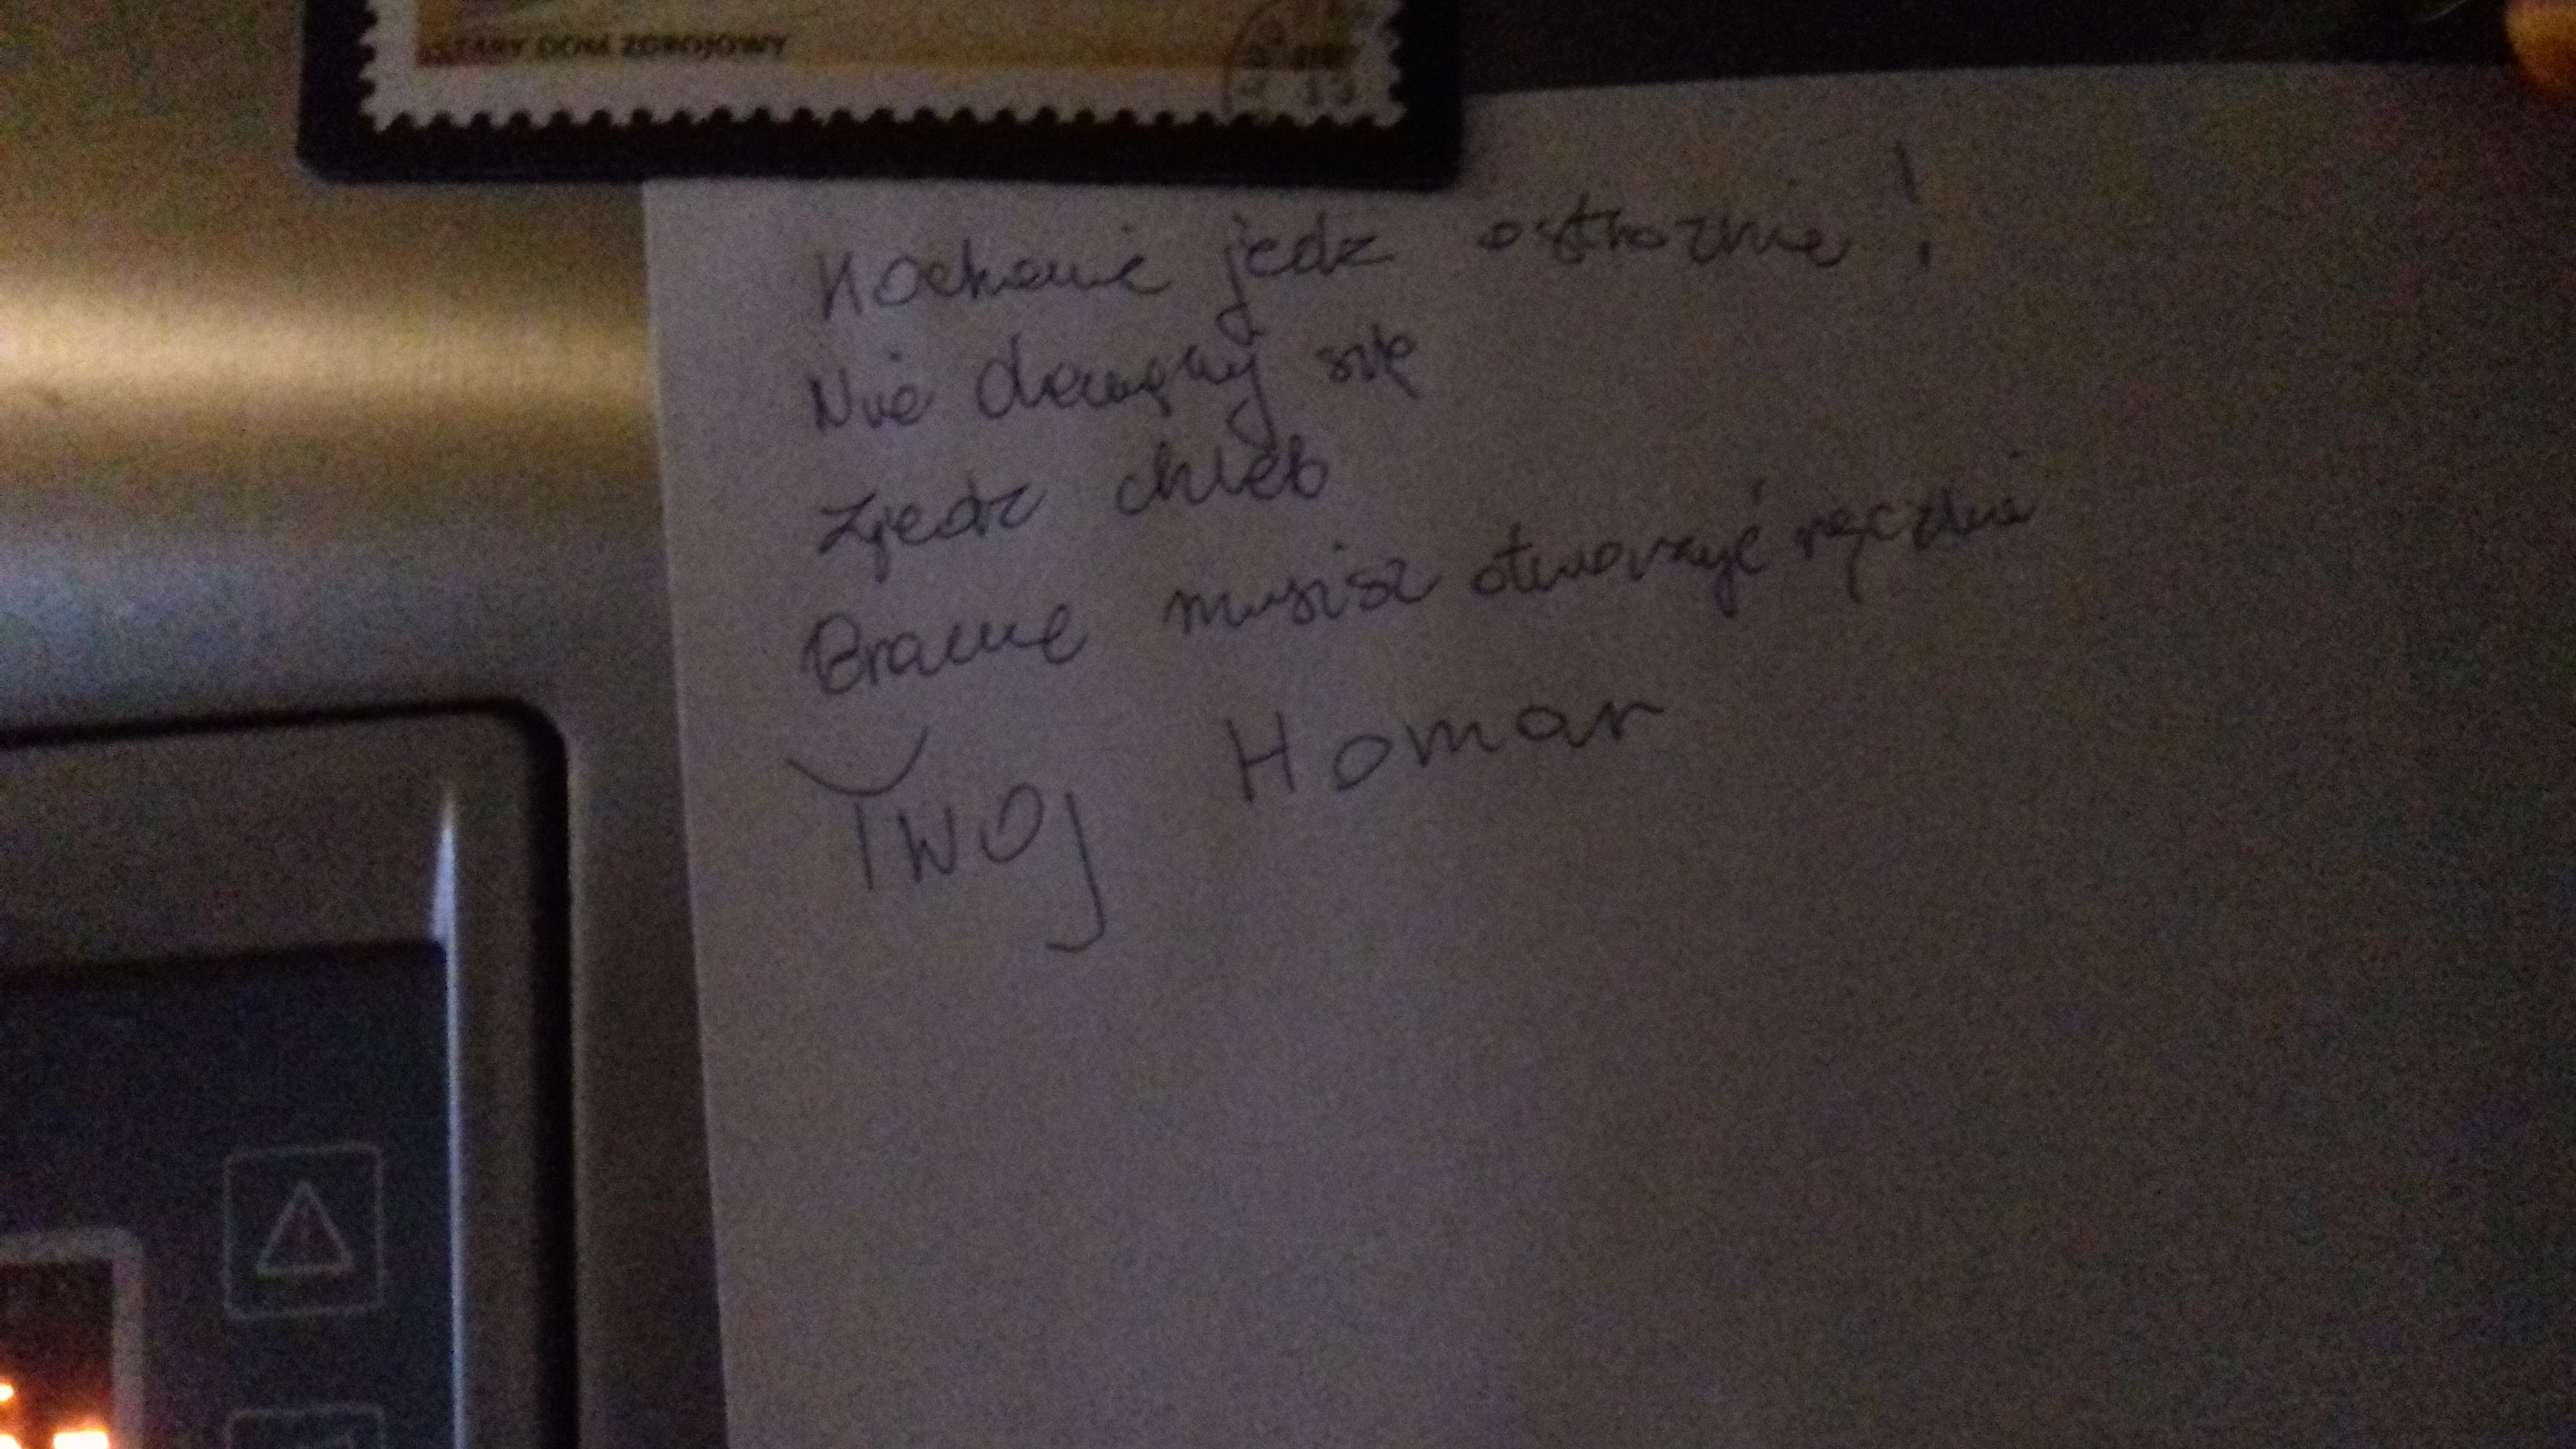 STARY DOM ZDROJOWY
Kochanie jedz ostrożnie!
Nie się
Zjedz chleb
Bramę musisz otworzyć ręcznie
TWOJ Homar